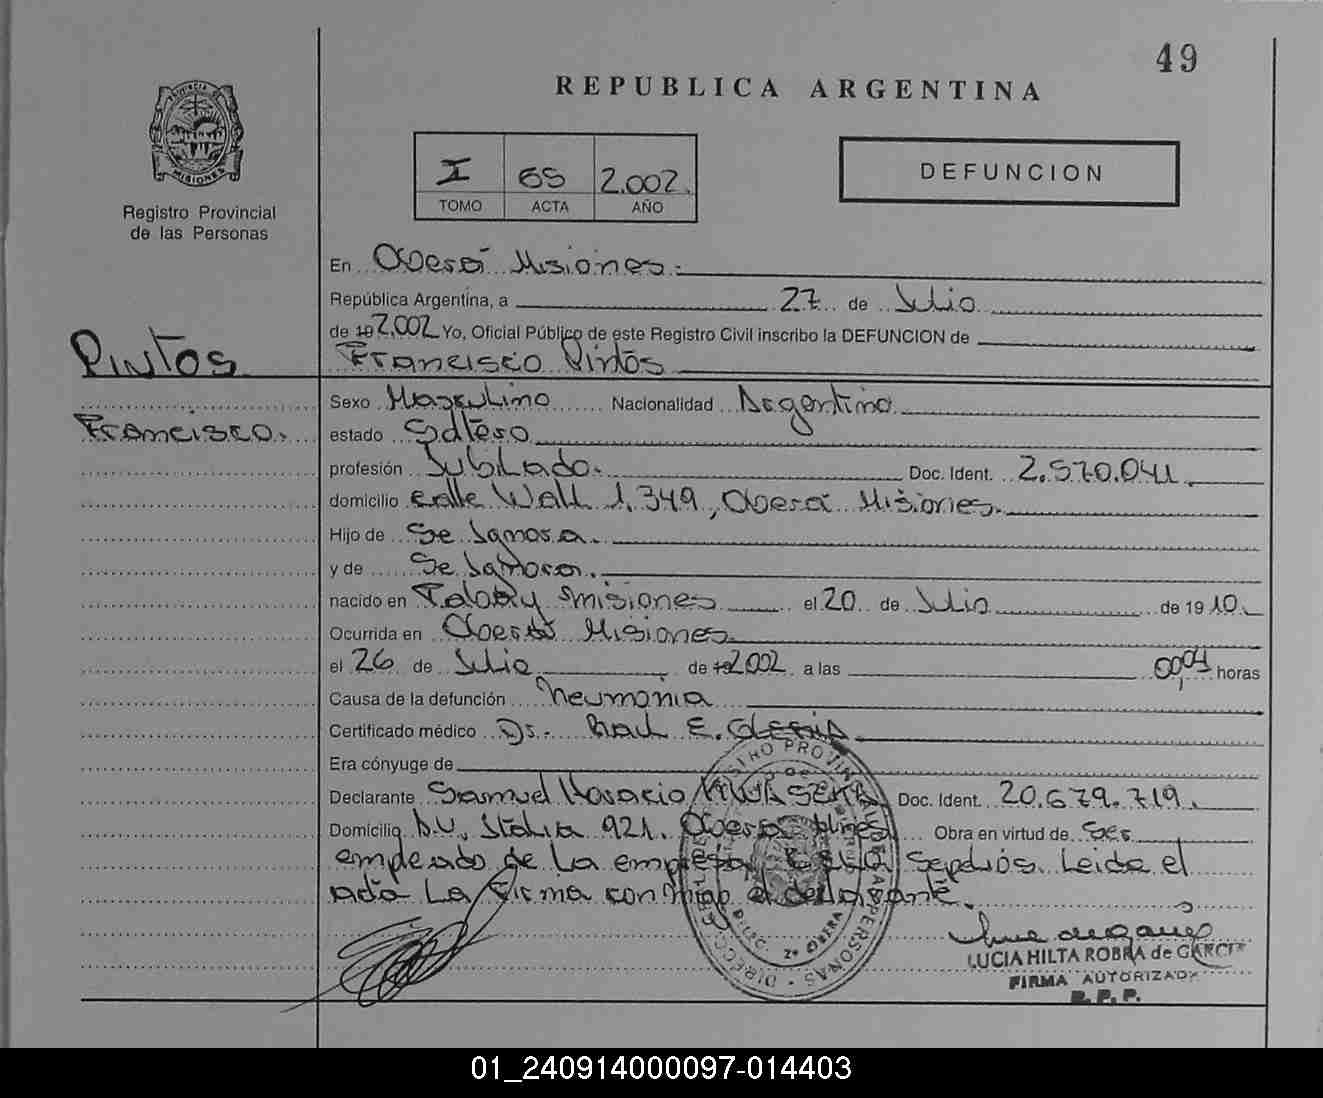 49
REPUBLICA ARGENTINA
PROVINCIA DE
MISIONES
Registro Provincial
de las Personas
I 65 2.002.
TOMO ACTA AÑO
DEFUNCION
En Oberá Misiones.
República Argentina, a 27 de Julio
de 19 2.002 Yo, Oficial Público de este Registro Civil inscribo la DEFUNCION de
Pintos
Francisco Pintos
Sexo Masculino Nacionalidad Argentino
Francisco.
estado Soltero
profesión Jubilado. Doc. Ident. 2.570.041.
domicilio calle Wall 1.349, Oberá Misiones.
Hijo de Se Ignora.
y de Se Ignora.
nacido en Misiones el 20 de Julio de 19 10.
Ocurrida en Oberá Misiones.
el 26 de Julio de 19 2.002 a las 00,04 horas
Causa de la defunción Neumonia
Certificado médico Dr. Raul E.
Era cónyuge de
Declarante Samuel Horacio Doc. Ident. 20.679.719.
Domicilio Italia 921. Oberá Misiones Obra en virtud de Ser
empleado de La empresa Sepelios. Leida el
acta La Firma conmigo el declarante.
DELEG. 2ª OBERA
LUCIA HILTA ROBRA de GARCIA
FIRMA AUTORIZADA
R. P. P.
01_240914000097-014403